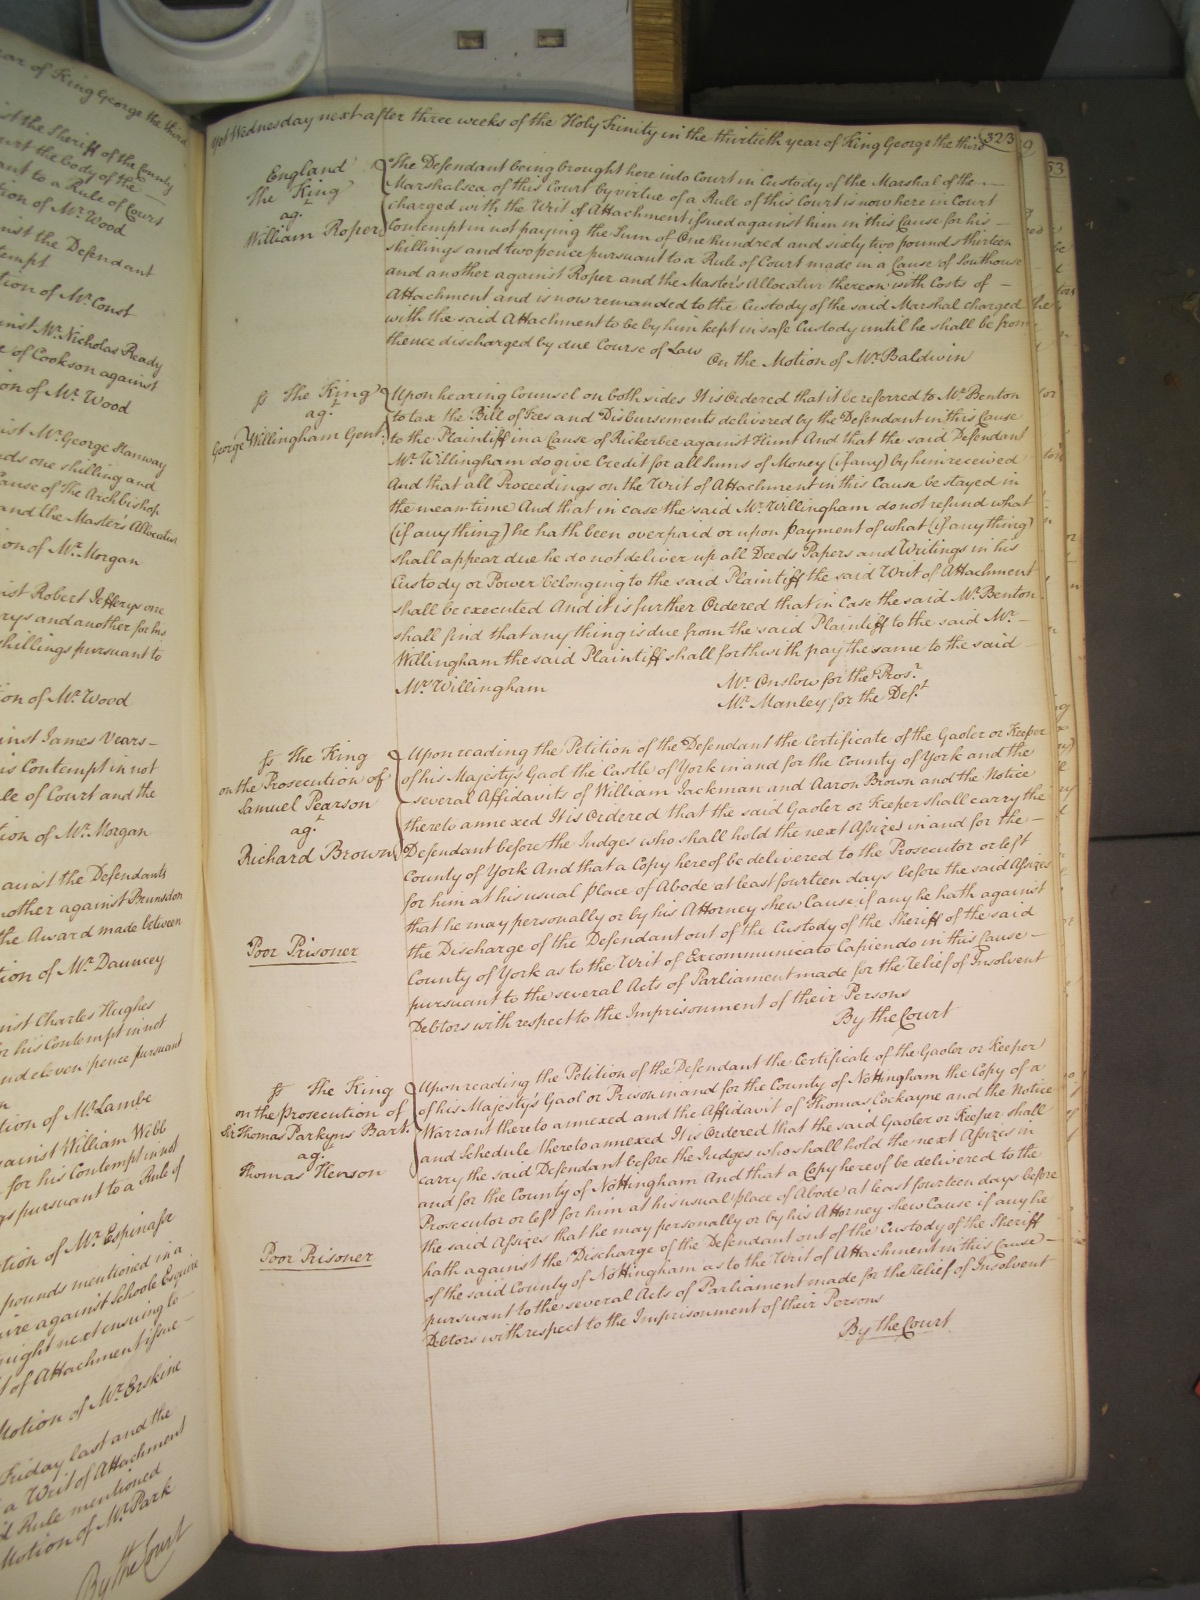 ear of King George the third
ist the Sheriff of the County
urt the body of the
ant to a Rule of Court
tion of Mr. Wood
inst the Defendant
tempt
tion of Mr. Const
inst Mr. Nicholas Ready
e of Cookson against
ion of Mr. Wood
ist Mr. George Hanway
nds one shilling and
ause of The Archbishop
and the Master's Allocatur
ion of Mr. Morgan
ist Robert Jefferys one
rys and another for his
shillings pursuant to
on of Mr. Wood
inst James Vears
is Contempt in not
le of Court and the
tion of Mr. Morgan
ainst the Defendants
nother against Brunsdon
the Award made between
tion of Mr. Dauncey
inst Charles Hughes
or his Contempt in not
nd eleven pence pursuant
n
tion of Mr. Lambe
gainst William Webb
for his Contempt in not
gs pursuant to a Rule of
tion of Mr. Espinasse
pounds mentioned in a
ire against Schoole Esquire
night next ensuing to
t of Attachment issue
Motion of Mr. Erskine
Friday last and the
a Writ of Attachment
d Rule mentioned
Motion of Mr. Park
By the Court
Yet Wednesday next after three weeks of the Holy Trinity in the thirtieth year of King George the third 323
England
The King
agt.
William Roper
The Defendant being brought here into Court in Custody of the Marshal of the
Marshalsea of this Court by virtue of a Rule of this Court is now here in Court
charged with the Writ of Attachment issued against him in this Cause for his
Contempt in not paying the Sum of One hundred and sixty two pounds thirteen
shillings and two pence pursuant to a Rule of Court made in a Cause of Southouse
and another against Roper and the Master's Allocatur thereon with Costs of
Attachment and is now remanded to the Custody of the said Marshal charged
with the said Attachment to be by him kept in safe Custody until he shall be from
thence discharged by due Course of Law
On the Motion of Mr. Baldwin
The King
agt.
George Willingham Gent.
Upon hearing Counsel on both sides It is Ordered that it be referred to Mr. Benton
to tax the Bill of Fees and Disbursements delivered by the Defendant in this Cause
to the Plaintiff in a Cause of Rickerbee against Hunt And that the said Defendant
Mr. Willingham do give Credit for all sums of Money (if any) by him received
And that all Proceedings on the Writ of Attachment in this Cause be stayed in
the mean time And that in case the said Mr. Willingham do not refund what
(if any thing) he hath been overpaid or upon payment of what (if any thing)
shall appear due he do not deliver up all Deeds Papers and Writings in his
Custody or Power belonging to the said Plaintiff the said Writ of Attachment
shall be executed And it is further Ordered that in Case the said Mr. Benton
shall find that any thing is due from the said Plaintiff to the said Mr.
Willingham the said Plaintiff shall forthwith pay the same to the said
Mr. Willingham
Mr. Onslow for the Pros.r
Mr. Manley for the Def.t
The King
on the Prosecution of
Samuel Pearson
agt.
Richard Brown
Poor Prisoner
Upon reading the Petition of the Defendant the Certificate of the Gaoler or Keeper
of his Majesty's Gaol the Castle of York in and for the County of York and the
several Affidavits of William Jackman and Aaron Brown and the Notice
thereto annexed It is Ordered that the said Gaoler or Keeper shall carry the
Defendant before the Judges who shall hold the next Assizes in and for the
County of York And that a Copy hereof be delivered to the Prosecutor or left
for him at his usual place of Abode at least fourteen days before the said Assizes
that he may personally or by his Attorney shew Cause if any he hath against
the Discharge of the Defendant out of the Custody of the Sheriff of the said
County of York as to the Writ of Excommunicato Capiendo in this Cause
pursuant to the several Acts of Parliament made for the Relief of Insolvent
Debtors with respect to the Imprisonment of their Persons
By the Court
The King
on the prosecution of
Sir Thomas Parkyns Bart.
agt.
Thomas Henson
Poor Prisoner
Upon reading the Petition of the Defendant the Certificate of the Gaoler or Keeper
of his Majesty's Gaol or Prison in and for the County of Nottingham the Copy of a
Warrant thereto annexed and the Affidavit of Thomas Cockayne and the Notice
and Schedule thereto annexed It is Ordered that the said Gaoler or Keeper shall
carry the said Defendant before the Judges who shall hold the next Assizes in
and for the County of Nottingham And that a Copy hereof be delivered to the
Prosecutor or left for him at his usual place of Abode at least fourteen days before
the said Assizes that he may personally or by his Attorney shew Cause if any he
hath against the Discharge of the Defendant out of the Custody of the Sheriff
of the said County of Nottingham as to the Writ of Attachment in this Cause
pursuant to the several Acts of Parliament made for the Relief of Insolvent
Debtors with respect to the Imprisonment of their Persons
By the Court
53